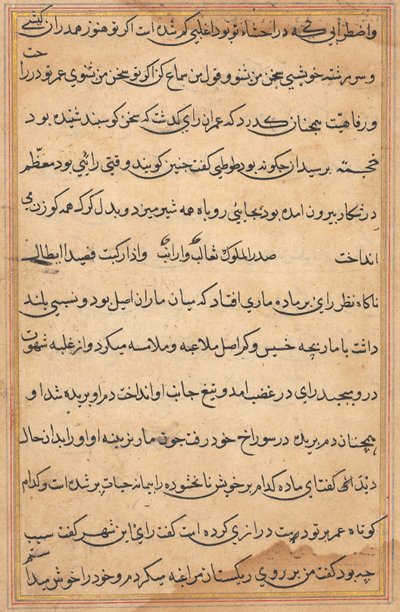 واضطرابی که در احشاء تو بود اغلبی کم شده است اکر تو هنوز همدران کیشی
و سررشته خویشی سخن من شنو و قول من سماع کن اکر تو سخن من شنوی عمر تو در راحت
و رفاهیت همچنان کذرد که عمر ان رای کذشت که سخن کوسبند شنیده بود
خجسته برسید از چکونه بود طوطی کفت چنین کویند وقتی رائی بود معظم
در شکار بیرون امده بود بجائی روباه همه شیر میزد و بدل کرک همه کوزن می
انداخت صدر الملوک ثعالب وارانب واذا رکبت فصیدا ابطال
ناکاه نظر رای بر ماده ماری افتاد که میان ماران اصیل بود و نسبی بلند
داشت با مار بچه خسیس و کم اصل ملاعبه و ملامسه میکرد و از غلبه شهوت
در و بیجید رای در غضب امد و تیغ جانب او انداخت دم او بریده شد او
همچنان دم بریده در سوراخ خود رفت چون مار نرینه او او را بدان حال
دید الی کفت ای ماده کدام بر خویش نابخشوده را بیمانه حیات بر شده است و کدام
کوتاه عمر بر تو دست درازی کرده است کفت رای این شهر کفت سبب
چه بود کفت من بر روی ریکستان مراغه میکردم و خود را خوش میداشتم